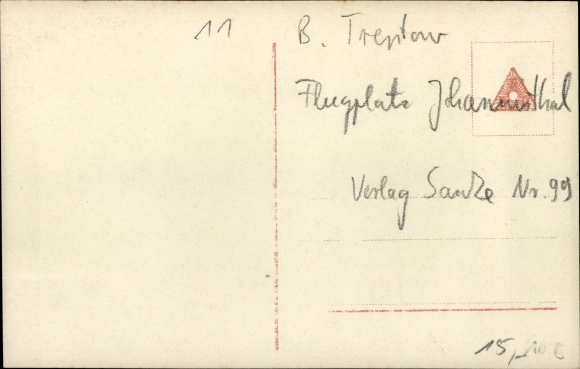 11
B. Treptow
Flugplatz Johannisthal
Verlag Sanke Nr. 99
15,-